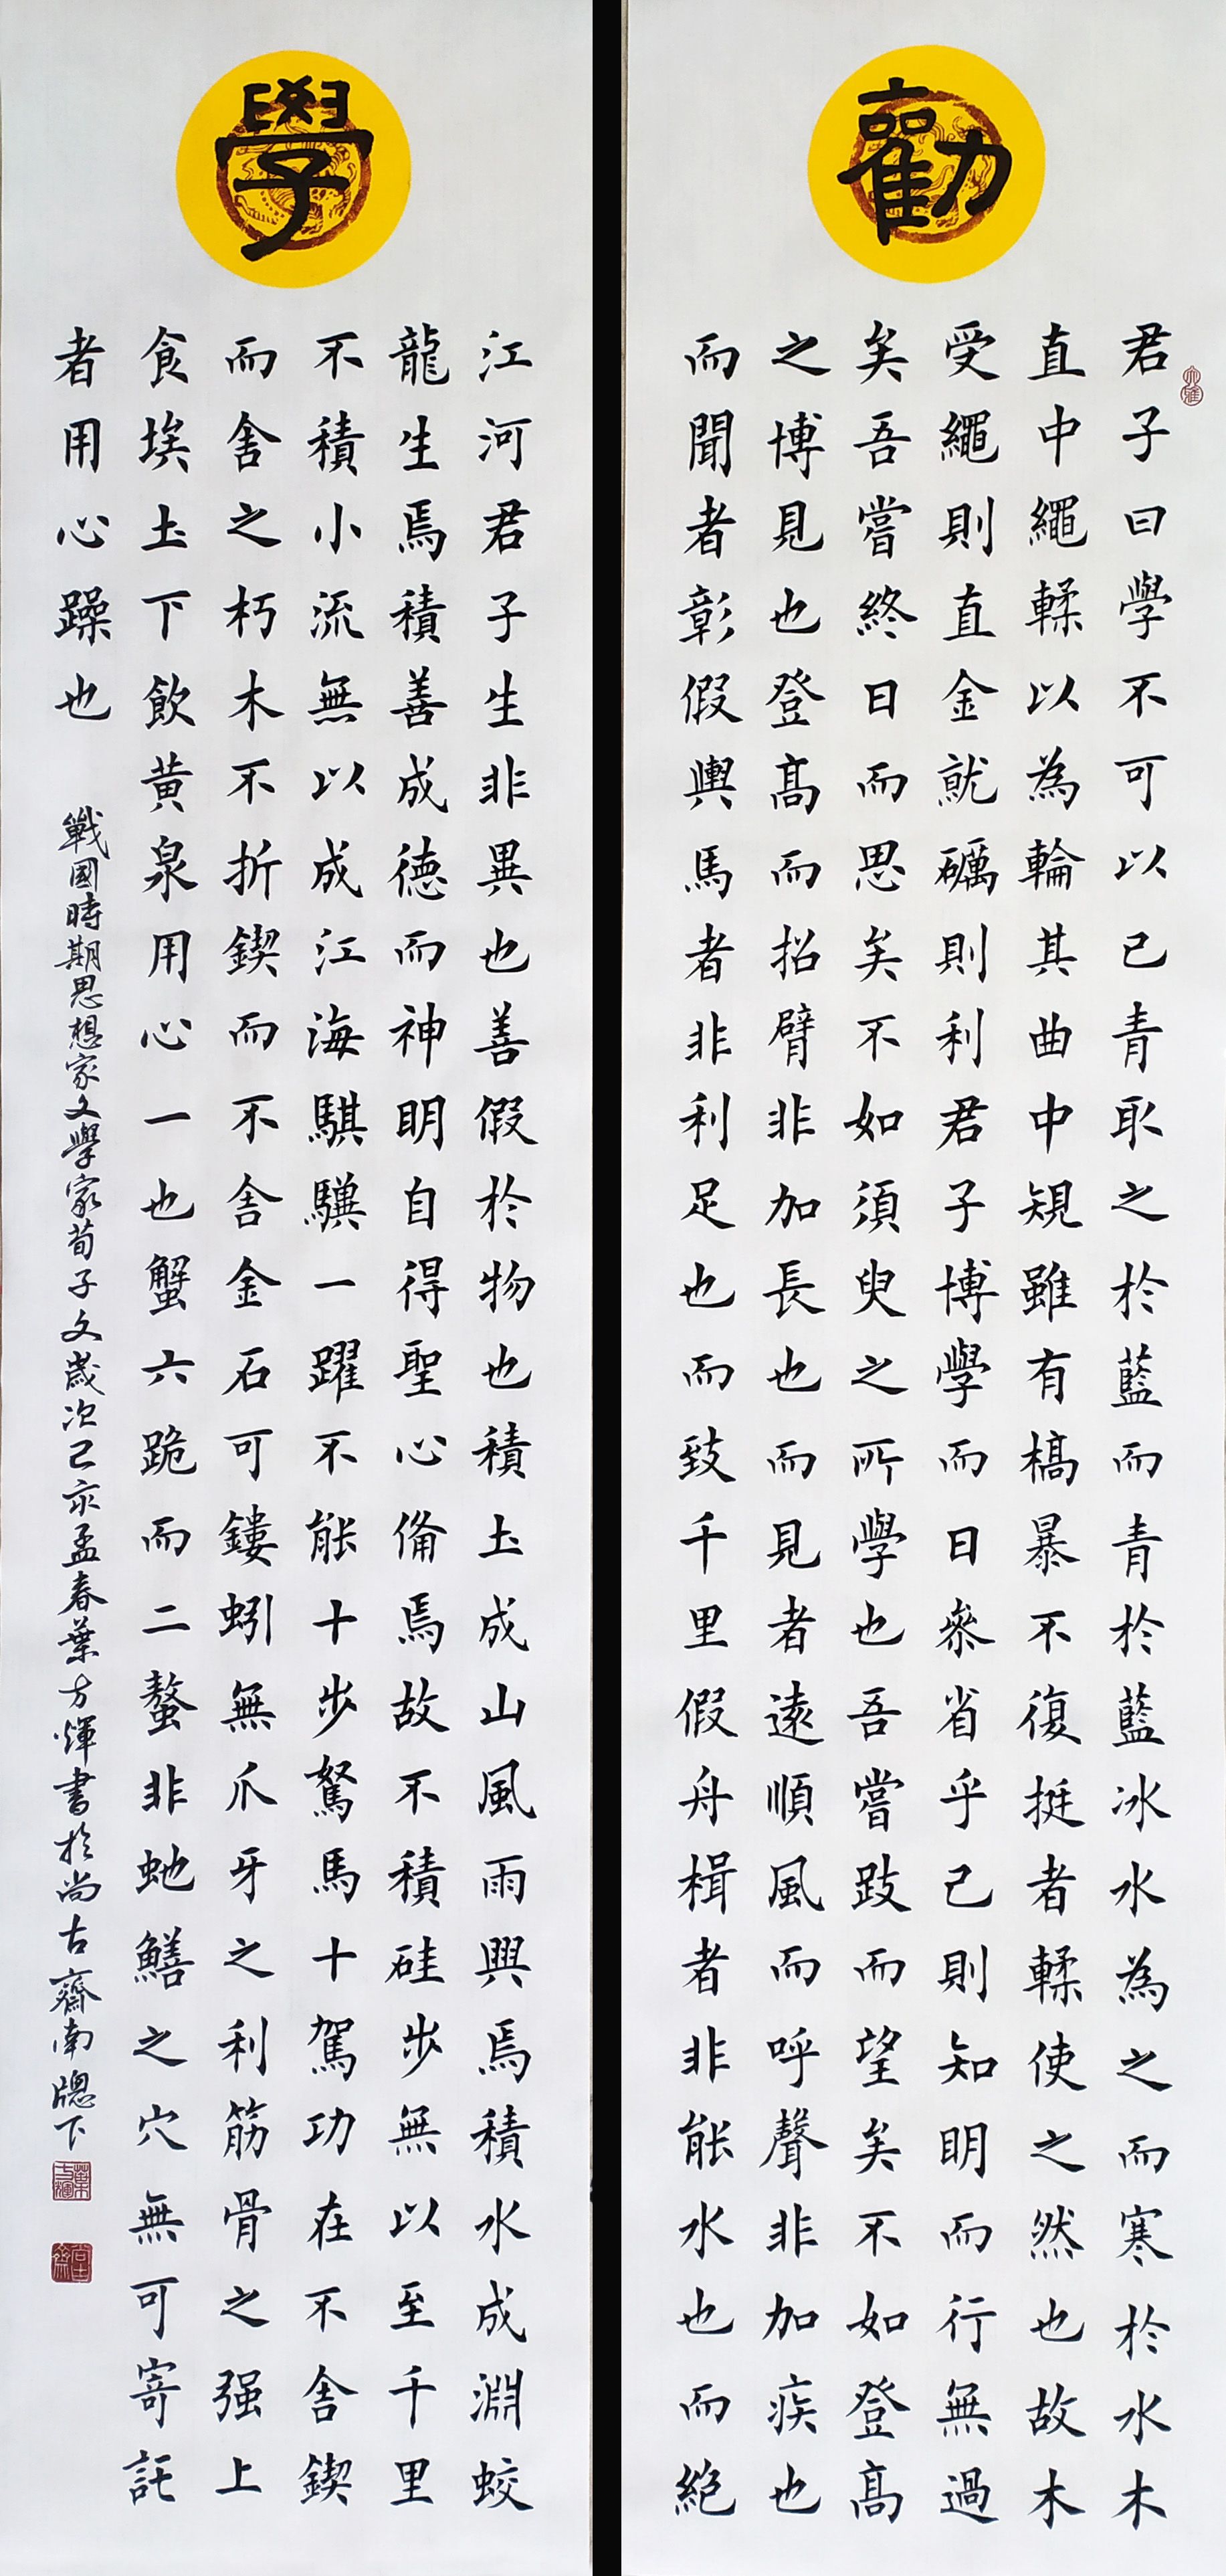 勸
大雅
君子曰學不可以已青取之於藍而青於藍冰水為之而寒於水木
直中繩輮以為輪其曲中規雖有槁暴不復挺者輮使之然也故木
受繩則直金就礪則利君子博學而日參省乎己則知明而行無過
矣吾嘗終日而思矣不如須臾之所學也吾嘗跂而望矣不如登高
之博見也登高而招臂非加長也而見者遠順風而呼聲非加疾也
而聞者彰假輿馬者非利足也而致千里假舟楫者非能水也而絕
學
江河君子生非異也善假於物也積土成山風雨興焉積水成淵蛟
龍生焉積善成德而神明自得聖心備焉故不積硅步無以至千里
不積小流無以成江海騏驥一躍不能十步駑馬十駕功在不舍鍥
而舍之朽木不折鍥而不舍金石可鏤蚓無爪牙之利筋骨之强上
食埃土下飲黄泉用心一也蟹六跪而二螯非虵鱔之穴無可寄託
者用心躁也
戰國時期思想家文學家荀子文歲次己亥孟春葉方煇書於尚古齋南牕下
葉方輝
尚古齋